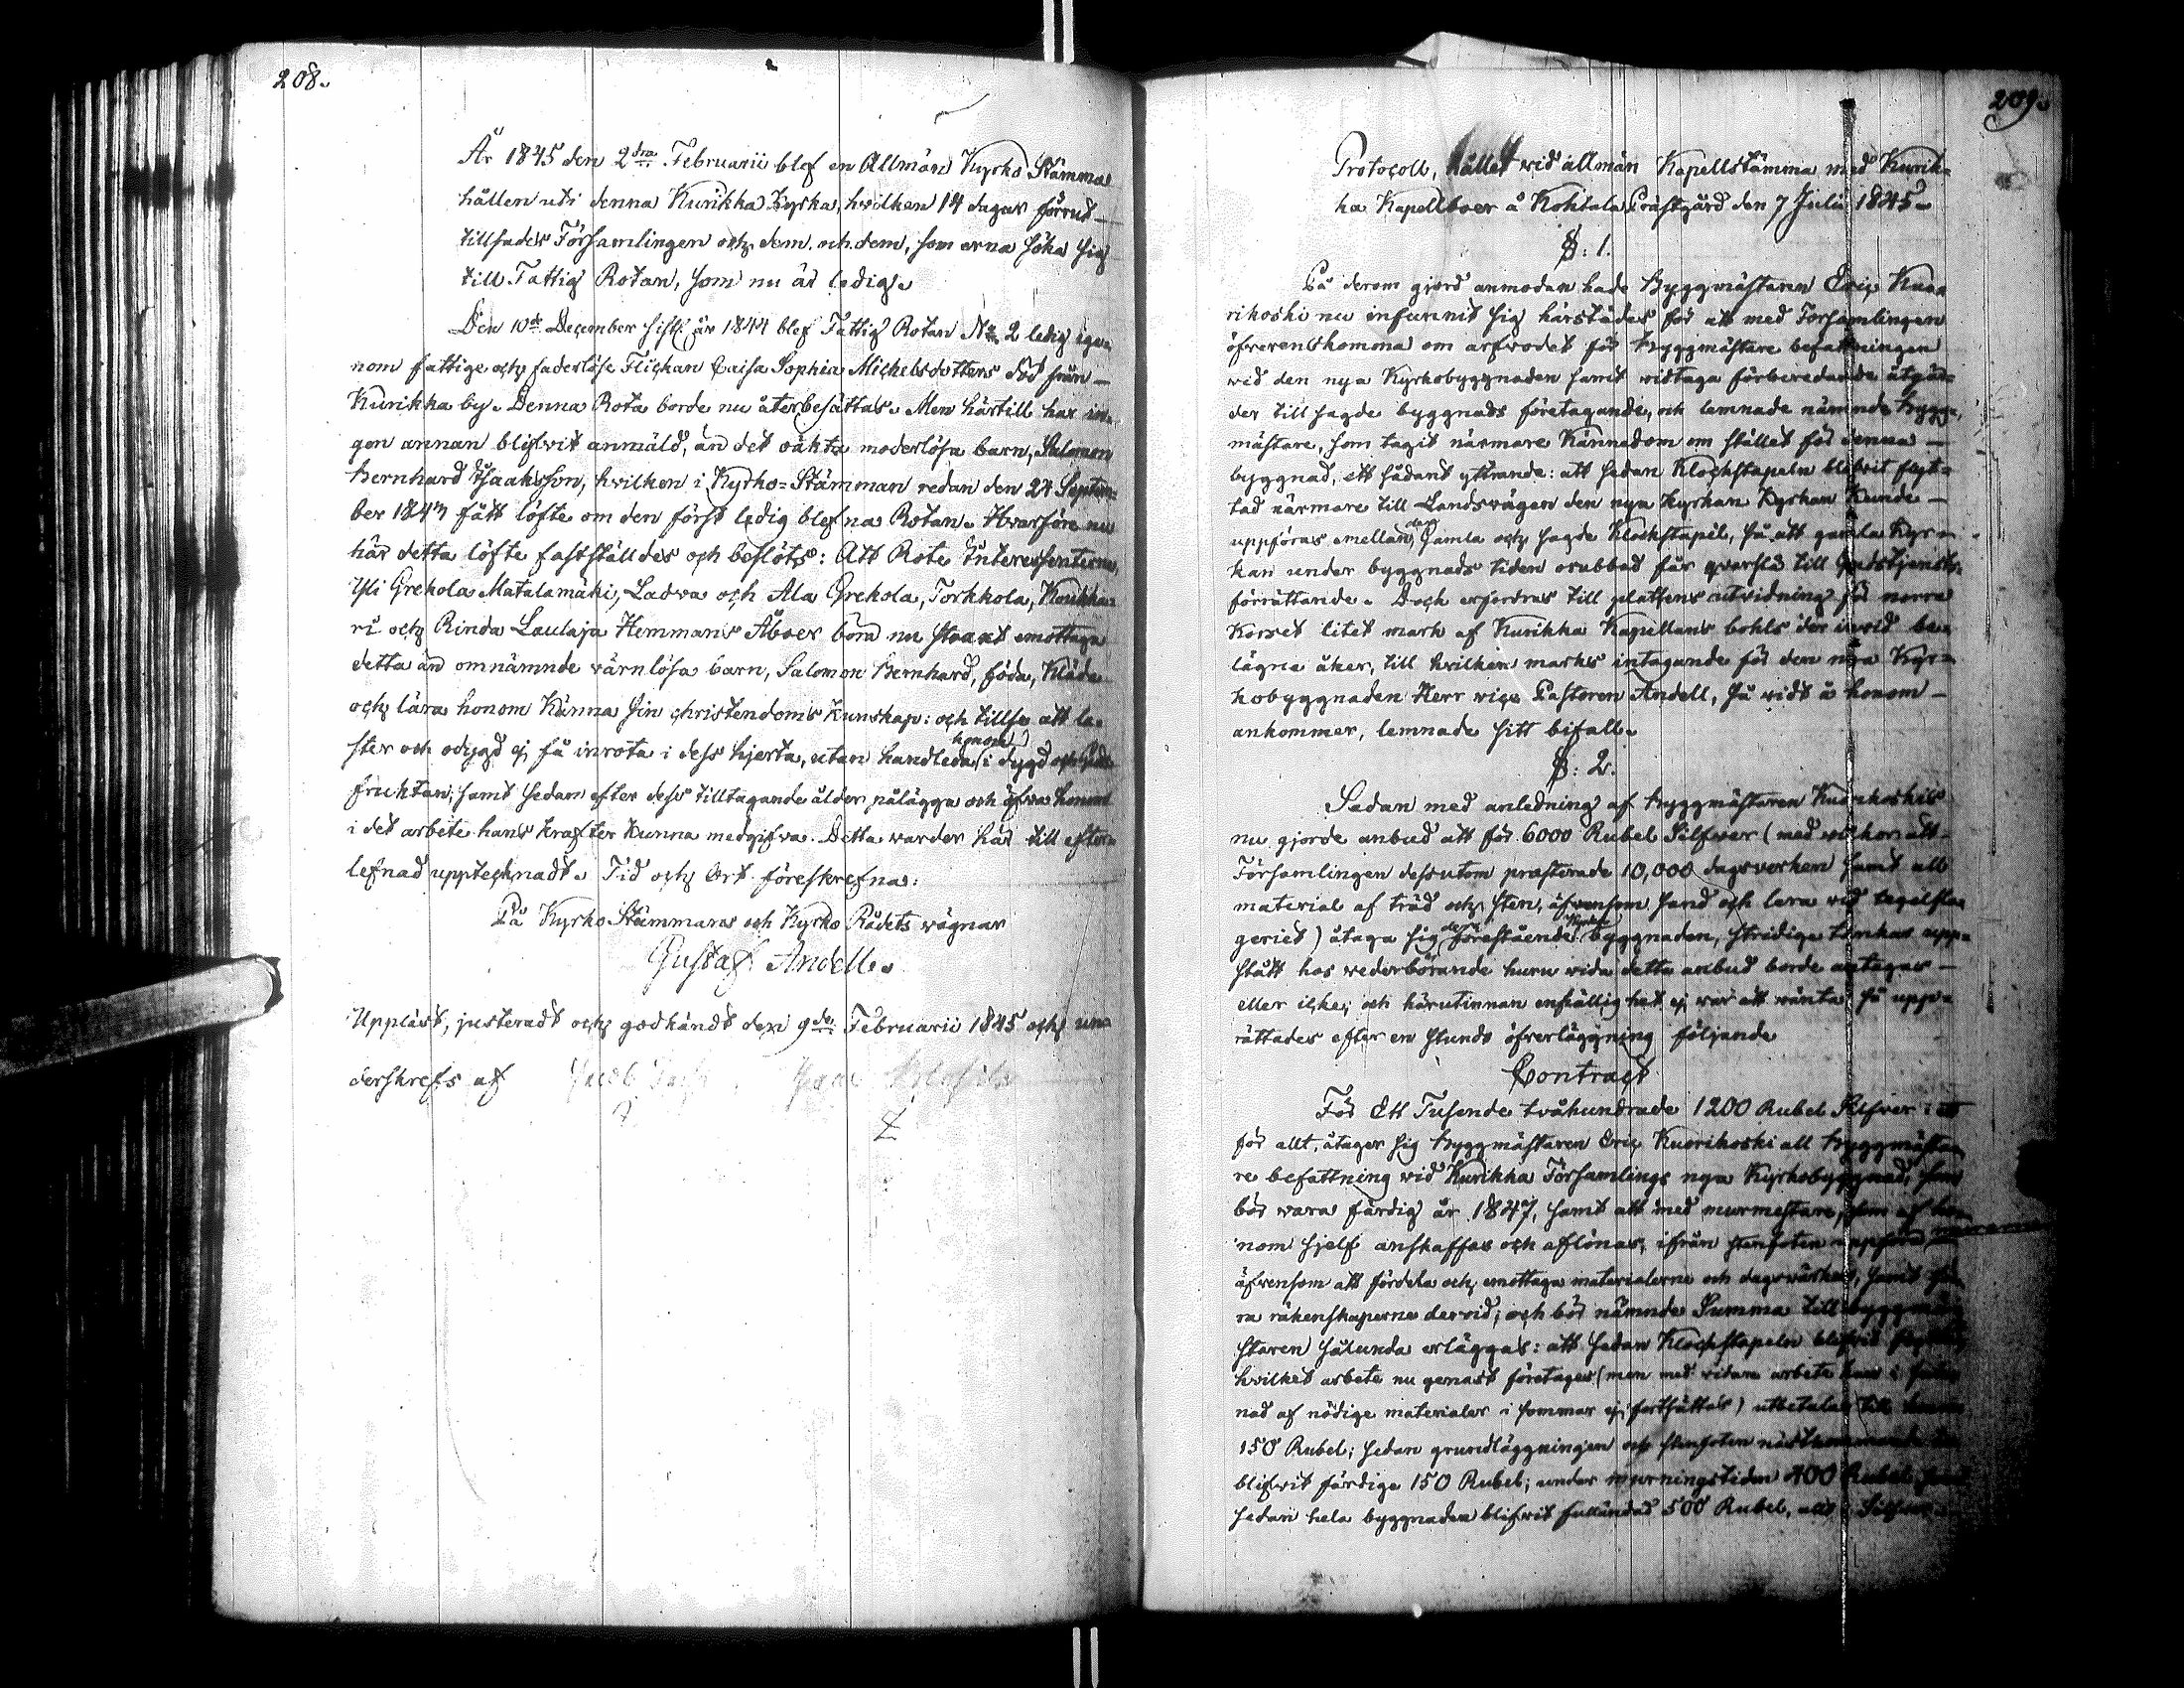 208.
År 1845 den 2dra Februarii blef en Allmän Kyrko Stämma
hållen uti denna Kurikka Kyrka, hvilken 14 dagar förut
tillsades Församlingen och dem och dem, som erna söka sig
till Fattig Rotan, som nu är ledig.
Den 10de December sistl. år 1844 blef Fattig Rotan No 2 ledig ige-
nom fattige och faderlöse Flickan Caisa Sophia Michelsdotters död från
Kurikka by. Denna Rota borde nu återbesättas. Men härtill har in-
gen annan blifvit anmäld, än det oäkta moderlösa barn, Salomon
Bernhard Isaaksson, hvilken i Kyrko-Stämman redan den 24 Septem-
ber 1843 fått löfte om den först ledig blefna Rotan. Hvarföre nu
här detta löfte fastställdes och beslöts: Att Rote Interessenterna,
Yli Grekola Matalamäki, Ladva och Ala Grekola, Torkkola, Koukka-
ri och Rinda Laulaja Hemmans Åboer böra nu straxt emottaga
detta än omnämnde värnlösa barn, Salomon Bernhard, föda, kläda
och lära honom känna sin christendoms kunskap: och tillse att la-
ster och odygd ej få inrota i dess hjerta, utan handleda honom i dygd och Guds
fruktan; samt sedan efter dess tilltagande ålder pålägga och öfva honom
i det arbete hans krafter kunna medgifva. Detta varder här till efter-
lefnad upptecknadt. Tid och Ort föreskrefna:
På Kyrko Stämmans och Kyrko Rådets vägnar
Gustaf Andell.
Uppläst, justeradt och godkändt den 9de Februarii 1845 och un-
derskrefs af Jacob
209.
Protocoll, hållet vid allmän Kapellstämma med Kurik-
ka Kapellboer å Kohtala Prästgård den 7 Julii 1845.
§: 1.
På derom gjord anmodan hade Byggmästaren Eric Kuo-
rikoski nu infunnit sig härstädes för att med Församlingen
öfverenskomma om arfvodet för Byggmästare befattningen
vid den nya Kyrkobyggnaden samt vidtaga förberedande åtgär-
der till sagde byggnads företagande, och lemnade nämnde bygg-
mästare, som tagit närmare kännedom om stället för denna
byggnad, ett sådant yttrande: att sedan Klockstapeln blifvit flyt-
tad närmare till Landsvägen den nya Kyrkan Kyrkan kunde
uppföras emellan den gamla och sagde Klockstapel, så att gamla Kyr-
kan under byggnads tiden orubbad får qvarstå till Gudstjensts
förrättande. Doch erfordras till platsens utvidgning på norra
Korset litet mark af Kurikka Kapellans bohls der invid be-
lägna åker, till hvilken marks intagande för den nya Kyr-
kobyggnaden Herr vice Pastoren Andell, så vidt å honom
ankommer, lemnade sitt bifall.
§: 2.
Sedan med anledning af Byggmästaren Kuorikoskis
nu gjorde anbud att för 6000 Rubel Silfver (med vilkor att
Församlingen dessutom præsterade 10,000 dagsverken samt all
material af träd och sten, äfvensom sand och lera vid tegelsla-
geriet) åtaga sig den förestående Kyrko byggnaden, stridige tankar upp-
stått hos vederbörande huru vida detta anbud borde antagas
eller icke; och härutinnan enhällighet ej var att vänta, så upp-
rättades efter en stunds öfverläggning följande
Contract
För Ett Tusende tvåhundrade 1200 Rubel Silfver i ett
för allt, åtager sig Byggmästaren Eric Kuorikoski all Byggmästa-
re befattning vid Kurikka Församlings nya Kyrkobyggnad, som
bör vara färdig år 1847, samt att med murmestare, som af ho-
nom sjelf anskaffas och aflönas, ifrån stenfoten uppföra
äfvensom att fördela och emottaga materialerne och dagsverken, samt fö-
ra räkenskaperne dervid; och bör nämnde Summa till byggmä-
staren sålunda erläggas: att sedan Klockstapeln blifvit flyttad
hvilket arbete nu genast företages (men med vidare arbete kan i sak-
nad af nödige materialer i sommar ej fortsättas) utbetalas till honom
150 Rubel; sedan grundläggningen och stenfoten nästkommande
blifvit färdige 150 Rubel; under murningstiden 400 Rubel samt
sedan hela byggnaden blifvit fulländad 500 Rubel, allt i Silfver